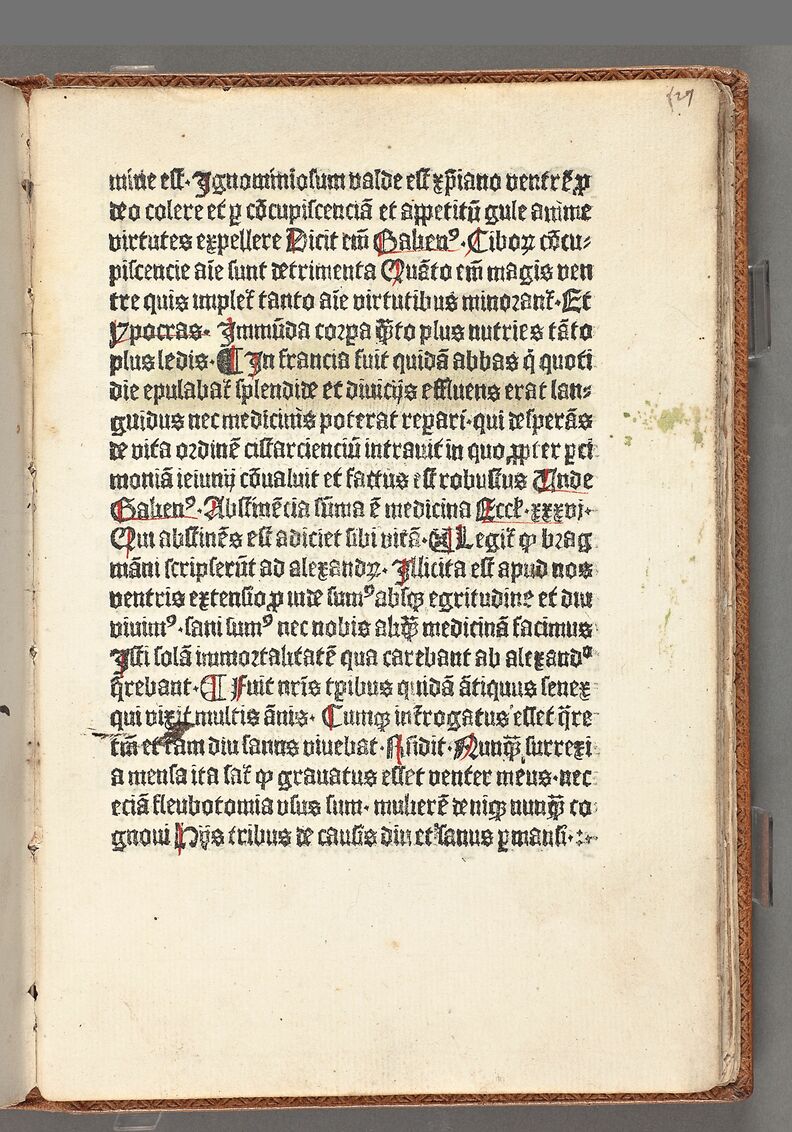 127
mine est· Ignominiosum valde est xp̄iano ventrē ꝓ
deo colere et ꝑ cōcupiscenciā et appetitū gule anime
virtutes expellere Dicit em̄ Galienꝰ· Ciboꝝ cōcu⸗
piscencie aīe sunt detrimenta Quāto em̄ magis ven
tre quis implet᷑ tanto aīe virtutibus minorant᷑· Et
Ypocras· Immūda corꝑa qͣ̄to plus nutries tāto
plus ledis· ¶ In francia fuit quidā abbas q̇ quoti
die epulabat᷑ splendide et diuicijs effluens erat lan⸗
guidus nec medicinis poterat reꝑari· qui desperās
de vita ordinē cistarciencīu intrauit in quo ꝓpter ꝑci
moniā ieiunij cōualuit et factus est robustus Unde
Galienꝰ· Abstinēcia sūma ē medicina Eccl̓· xxxvj·
Qui abstinēs est adiciet sibi vitā· ¶ Legit᷑ ꝙ brag
māni scripserūt ad alexandꝝ· Illicita est apud nos
ventris extensio ꝓ inde sumꝰ absqꝫ egritudine et diu
viuimꝰ· sani sumꝰ nec nobis aliqͣ̄ medicinā facimus
Isti solā immortalitatē qua carebant ab alexandº
q̄rebant· ¶ Fuit nr̄is tꝑibus quidā ātiquus senex
qui vixit multis ānis· Cumqꝫ int᷑rogatus esset q̄re
tm̄ et tam diu sanus viuebat· Rn̄dit· Nunqͣ̄ surrexi
a mensa ita sat᷑ ꝙ grauatus esset venter meus· nec
eciā fleubotomia vsus sum· mulierē deniqꝫ nunqͣ̄ co
gnoui Hijs tribus de causis diu et sanus ꝑmansi·:⁊